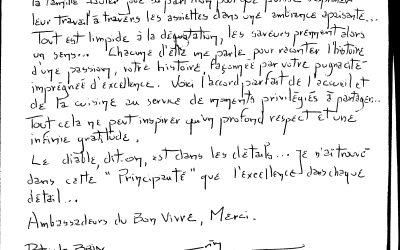 la famille
leur travail à travers les assiettes dans une ambiance apaisante...
Tout est limpide à la dégustation, les saveurs prennent alors
un sens... Chacune d'elle une parle pour raconter l'histoire
d'une passion, votre histoire, façonnée par votre pugnacité
imprégnée d'excellence. Voici l'accord parfait de l'accueil et
de la cuisine au service de moments privilégiés à partager...
Tout cela ne peut inspirer qu'un profond respect et une
infinie gratitude.
Le diable, dit-on, est dans les détails... Je n'ai trouvé
dans cette "Principauté" que l'excellence dans chaque
détail...
Ambassadeurs du Bon Vivre, Merci.